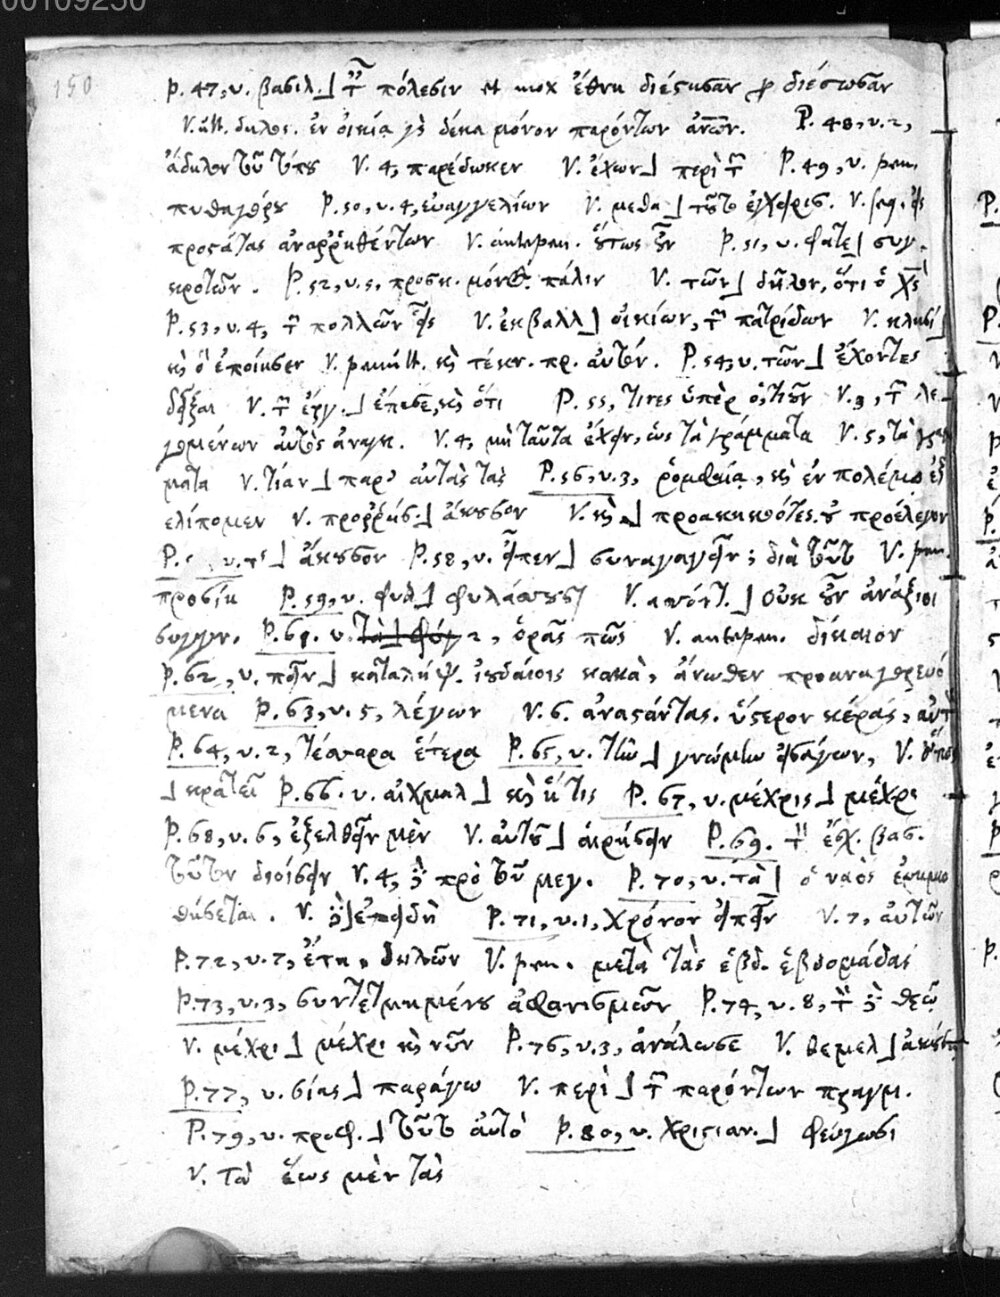 00109250
150
P. 47, v. βασιλ.⌋ τῶν πόλεσιν et mox ἔθνη διέστησαν pro διέσωσαν
V. ult. δηλος. ἐν οἰκίᾳ γὸ δέκα μόνον παρόντων ἀνῶν. P. 48, v. 2,
ἄδηλον τοῦ τύπου V. 4, παρέδωκεν V. ἔχων⌋ περὶ τῶν P. 49, v. pen.
πυθαγόρου P. 50, v. 4, εὐαγγελίων V. μεθα⌋ τοῦτο ἐγχειρισ. V. seq. εἰς
προστάτας ἀναρρηθέντων V. antepen. οὕτως οὖν P. 51, v. φατε⌋ συγ-
κροτῶν. P. 52, v. 5, προσκ. μόνον πάλιν V. τῶν⌋ δῆλον, ὅτι ὁ χς
P. 53, v. 4, τῶν πολλῶν εἰς V. ἐκβαλλ⌋ οἰκιῶν, τῶν πατρίδων V. κλησι⌋
κὶ ὃ ἐποίησεν V. penult. κὶ τέκν. πρ. αὐτόν. P. 54, v. τῶν⌋ ἔχοντες
δεῖξαι V. τῶν ἔργ.⌋ ἔπεσε, κὶ ὅτι P. 55, τινες ὑπὲρ ὁτιοῦν V. 3, τῶν λε-
γομένων αὐτοὺς ἀναγκ. V. 4, μὴ ταῦτα ἔχειν, ὡς τὰ γράμματα V. 5, τὰ γράμ
ματα V. τίαν⌋ παρ' αὐτὰς τὰς P. 56, v. 3, ῥομφαίᾳ, κὶ ἐν πολέμῳ ἐξ
ελίπομεν V. προρρησ⌋ ἄκουσον V. κὶ⌋ προακηκοότες οὐ προέλεγον
P. v. τ⌋ ἄκουσον P. 58, v. εἶπεν⌋ συναγαγεῖν; διὰ τοῦτο V. pen.
προσήκ P. 59, v. φυλ⌋ φυλάσσουσι V. αποντ.⌋ οὐκ οὖν ἀνάξιοι
συγγν. P. 61. v. 2, ὁρᾷς πῶς V. antepen. δίκαιον
P. 62, v. πᾶν⌋ καταλήψ. ἰουδαίοις κακὰ, ἄνωθεν προαναγορευό
μενα P. 63, v. 5, λέγων V. 6. ἀναστάντας. ὕστερον κέρας, αὐτ
P. 64, v. 2, τέσσαρα ἕτερα P. 65, v. τὴν⌋ γνώμην εἰσάγων, V.
⌋ κρατεῖ P. 66. v. αἰχμαλ⌋ κὶ ἥτις P. 67, v. μέχρις⌋ μέχρι
P. 68, v. 6, ἐξελθεῖν μὲν V. αὐτοῦ⌋ αἱρήσειν P. 69. τὴν ἐσχ. βασ.
τοῦτον διοίσειν V. 4, ὃν πρὸ τοῦ μεγ. P. 70, v. τὰ⌋ ὁ ναὸς ἐρημω
θήσεται. V. ὃν⌋ ἐπειδὴ P. 71, v. 1, χρόνον εἰπεῖν V. 7, αὐτῶν
P. 72, v. 7, ἔτη, δηλῶν V. pen. μετὰ τὰς ἑβδ. ἑβδομάδας
P. 73, v. 3, συντετμημένου ἀφανισμῶν P. 74, v. 8, τὸν ὃν θεῷ
V. μέχρι⌋ μέχρι κὶ νῦν P. 76, v. 3, ἀνάλωσε V. θεμελ⌋
P. 77, v. σίας⌋ παράγω V. περὶ⌋ τῶν παρόντων πραγμ.
P. 79, v. προφ.⌋ τοῦτο αὐτὸ P. 80, v. χριστιαν.⌋ φεύγωσι
V. τὰ ἕως μὲν τὰς